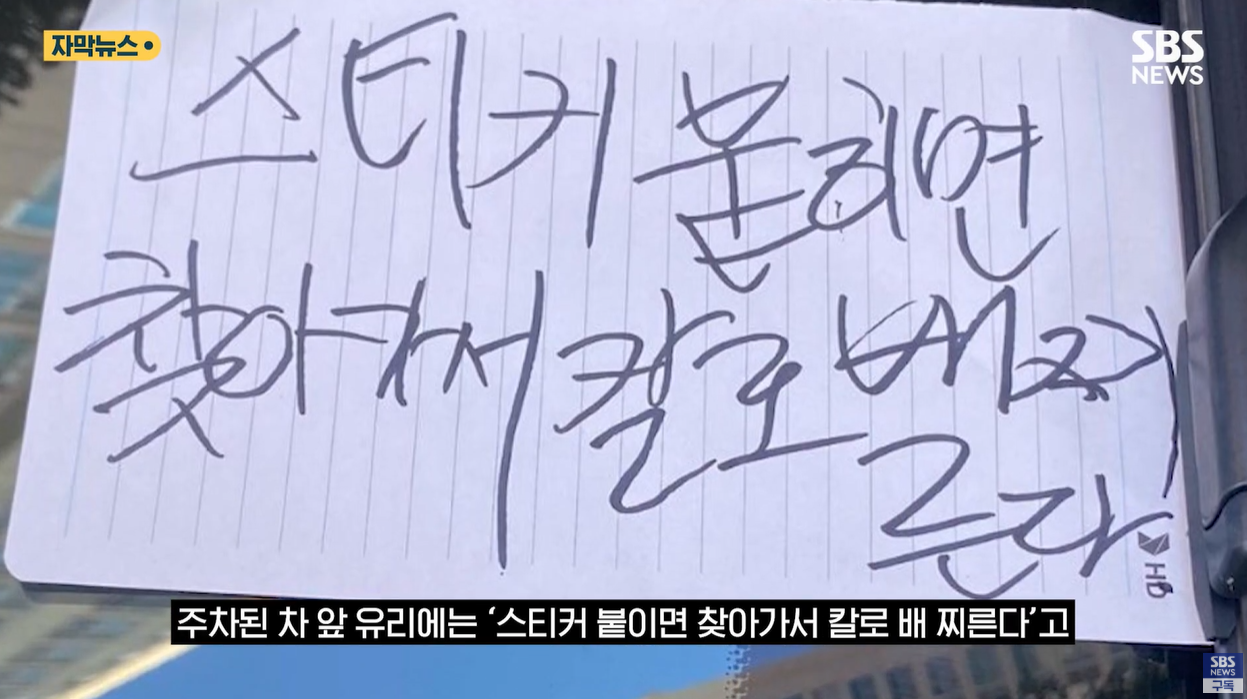 자막뉴스
SBS
NEWS
스티커 붙히면
찾아가서 칼로 배 찌
른다
HB
주차된 차 앞 유리에는 ‘스티커 붙이면 찾아가서 칼로 배 찌른다’고
SBS
NEWS
구독